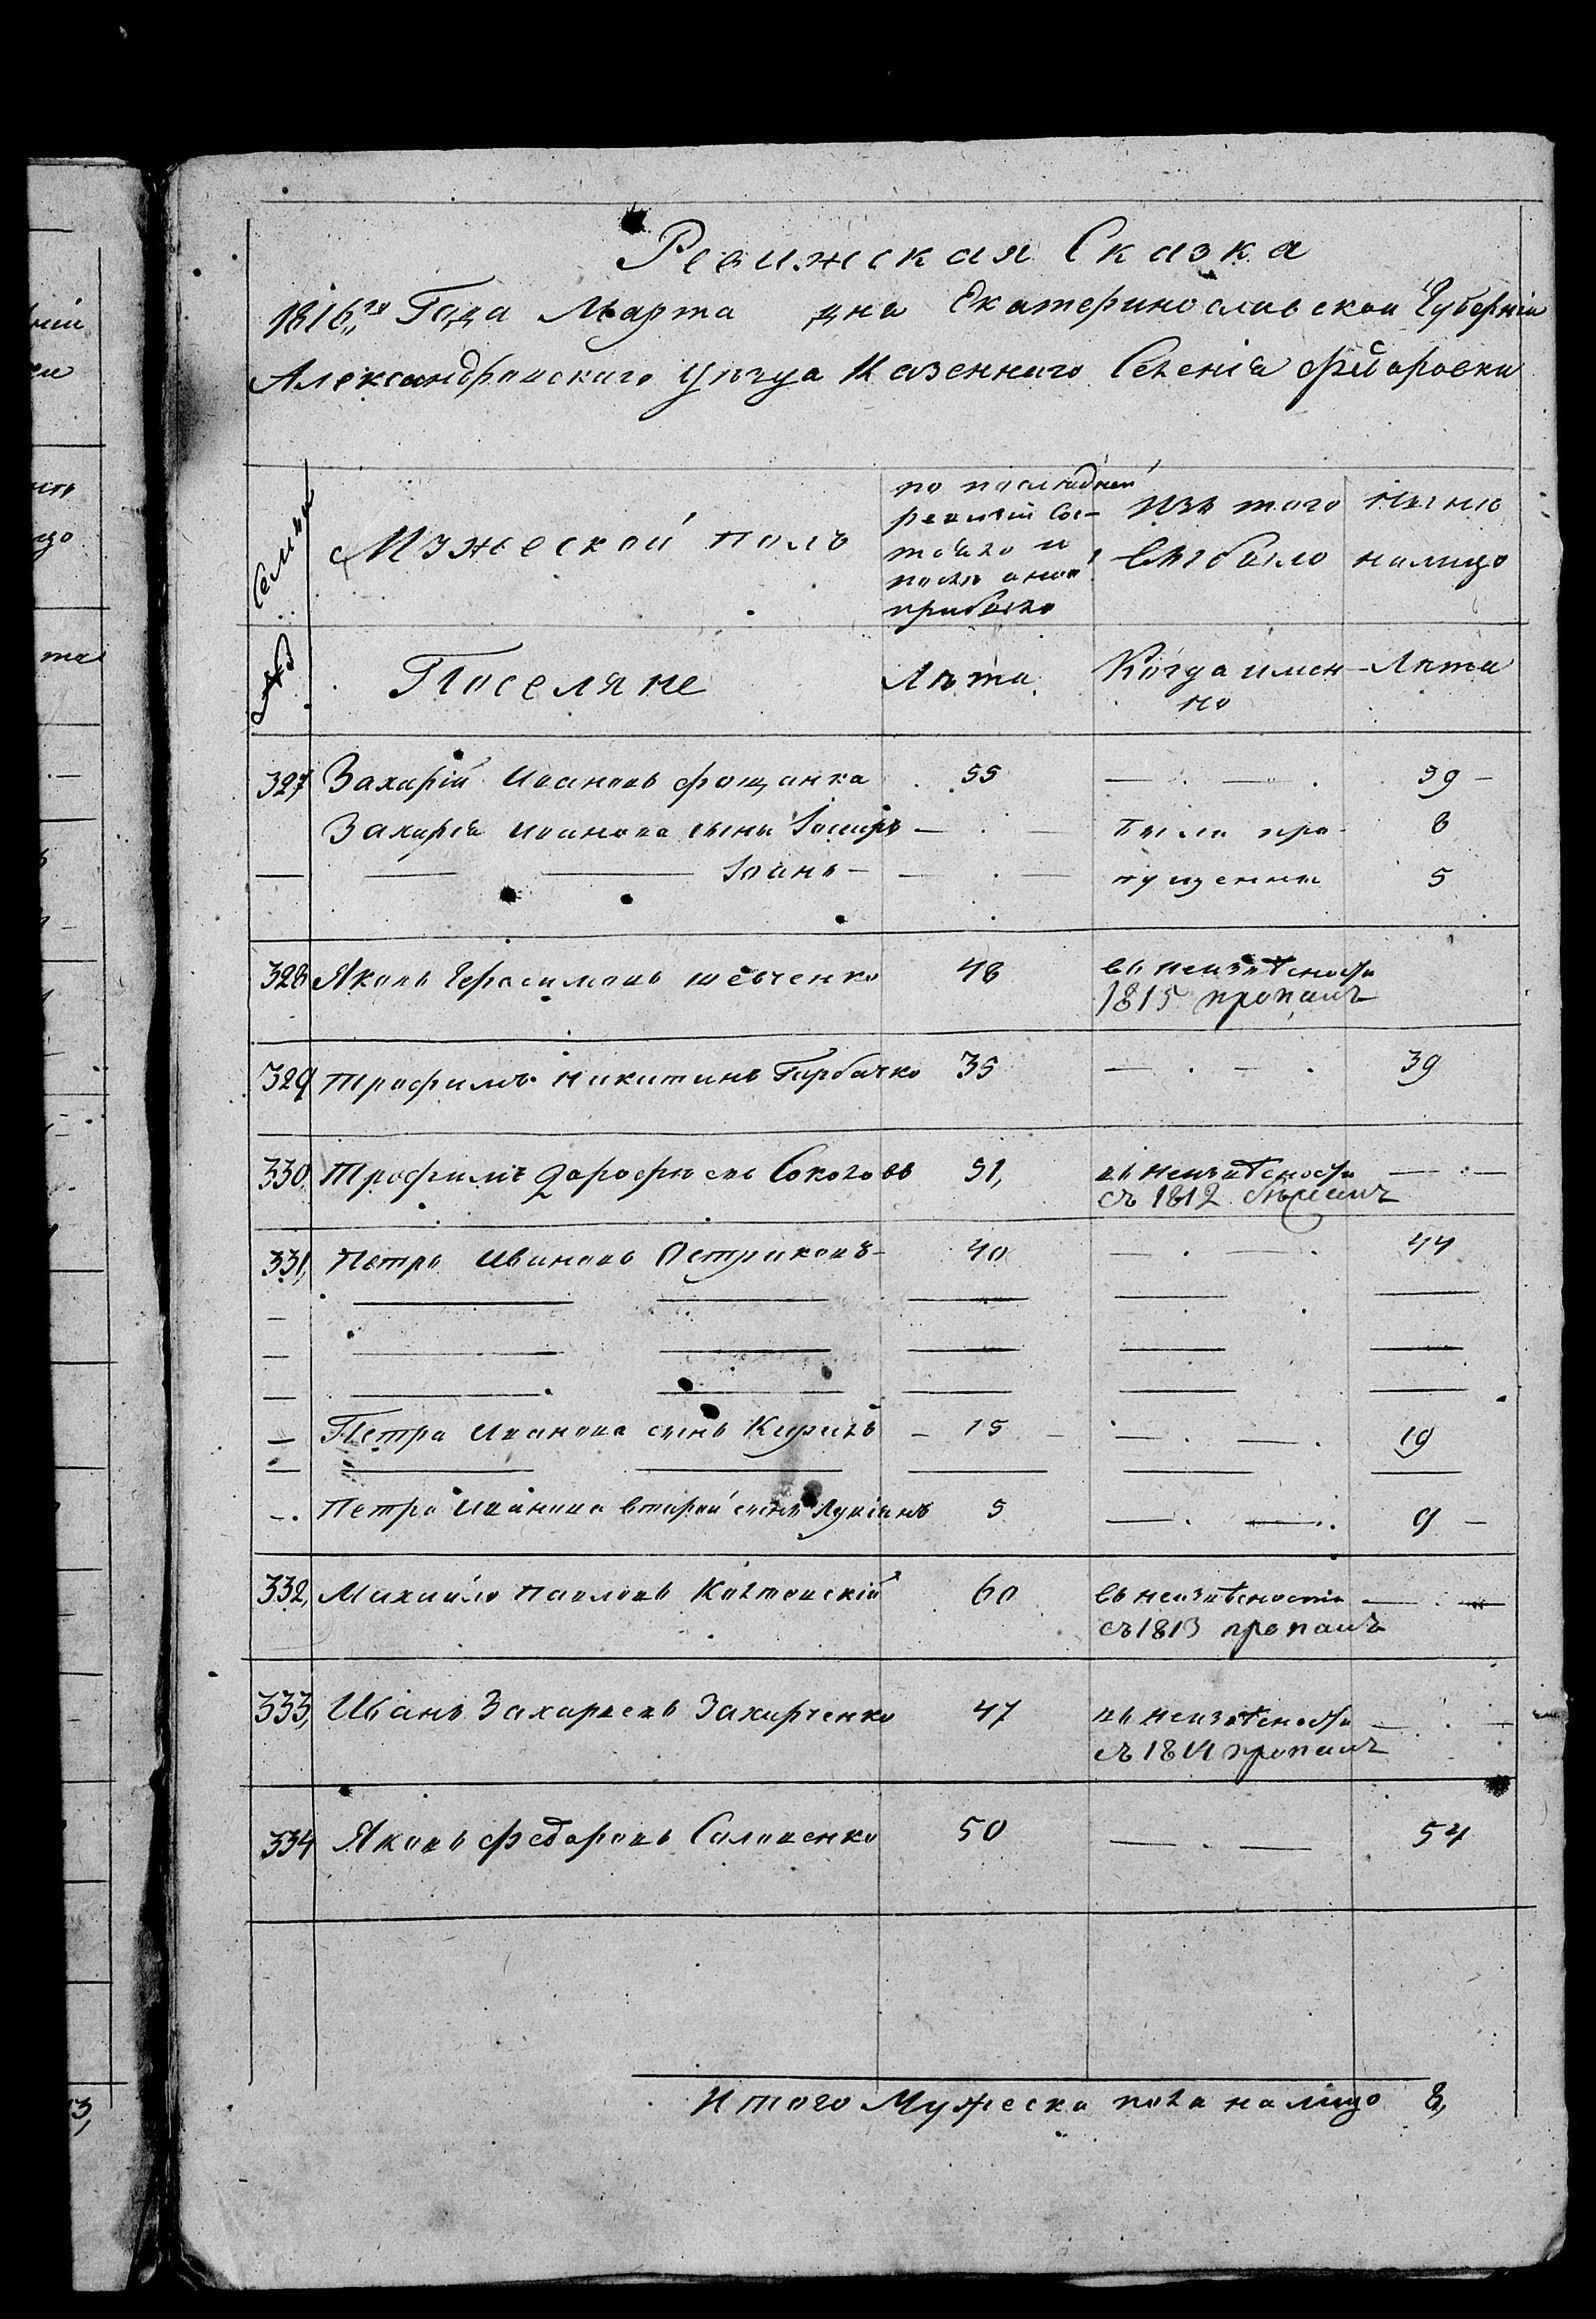 Ревижская Сказка
1816,, го Года Марта дня Екатеринославской Губерніи
Александровскаго уѣзда Казеннаго Селенія Фйоровки
Семьи
Мужеской полъ
по последней
ревизіи сос-
тояло и
после оной
прибыло
Изъ того
выбыло
Ныне
налицо
№
Поселяне
Лѣта
Когда имен-
но
Лѣта
327 Захарій Ивановъ Фощанка 55 — . — . 59 —
Захарія Иванова сыны Іосифъ — . — были про- 8
— — — Іоанъ — — . — пущенны 5
328 Яковъ Герасимовъ Шевченко 48 въ неизвѣсности
1815 пропалъ
329 Трофимъ Никитинъ Горбачко 35 — . — . 39
330, Трофимъ Дорофѣевъ Соколовъ 51, въ неизвѣсности — . —
съ 1812
331, Петръ Ивановъ Петриковъ — 40 — . . 44
— Петра Иванова сынъ Кирилъ — 15 — — . — . 19
— . Петра Иванова второй сынъ Лукіянъ 5 — . — . 9 —
332, Михайло Павловъ Колтовскій 60 въ неизвѣсности — . —
съ 1813 пропалъ
333, Иванъ Захарьевъ Захарченко 47 въ неизвѣсности — . —
съ 1814 пропалъ
334 Яковъ Федоровъ Солопенко 50 — . — 54
Итого Мужеска пола налицо 8,